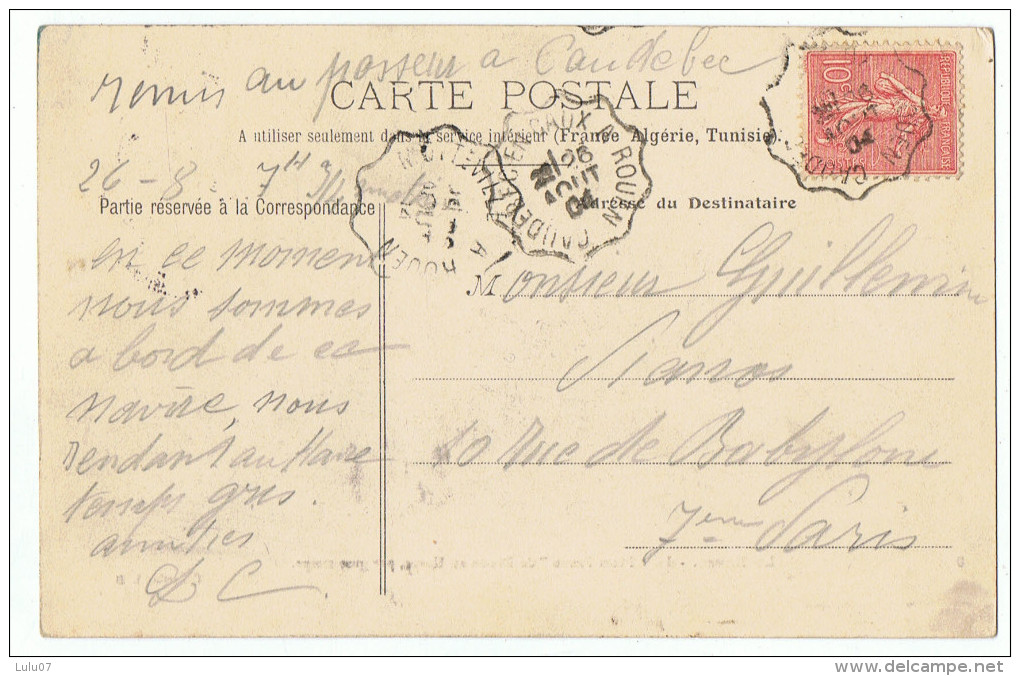 remis au passeur a Caudebec
CARTE POSTALE
A utiliser seulement dans le service intérieur (France Algérie, Tunisie).
26-8 7H 3/4
Partie réservée à la Correspondance
Adresse du Destinataire
en ce moment
nous sommes
a bord de ce
navire, nous
rendant au Havre
temps gris.
amitiés
M onsieur Guillemin
Pianos
10 rue de Babylone
7eme Paris
CAUDEBEC EN CAUX ROUEN
26
AOUT
04
MOTTEVILLE A ROUEN
10c
REPUBLIQUE FRANÇAISE
POSTES
Lulu07
www.delcampe.net